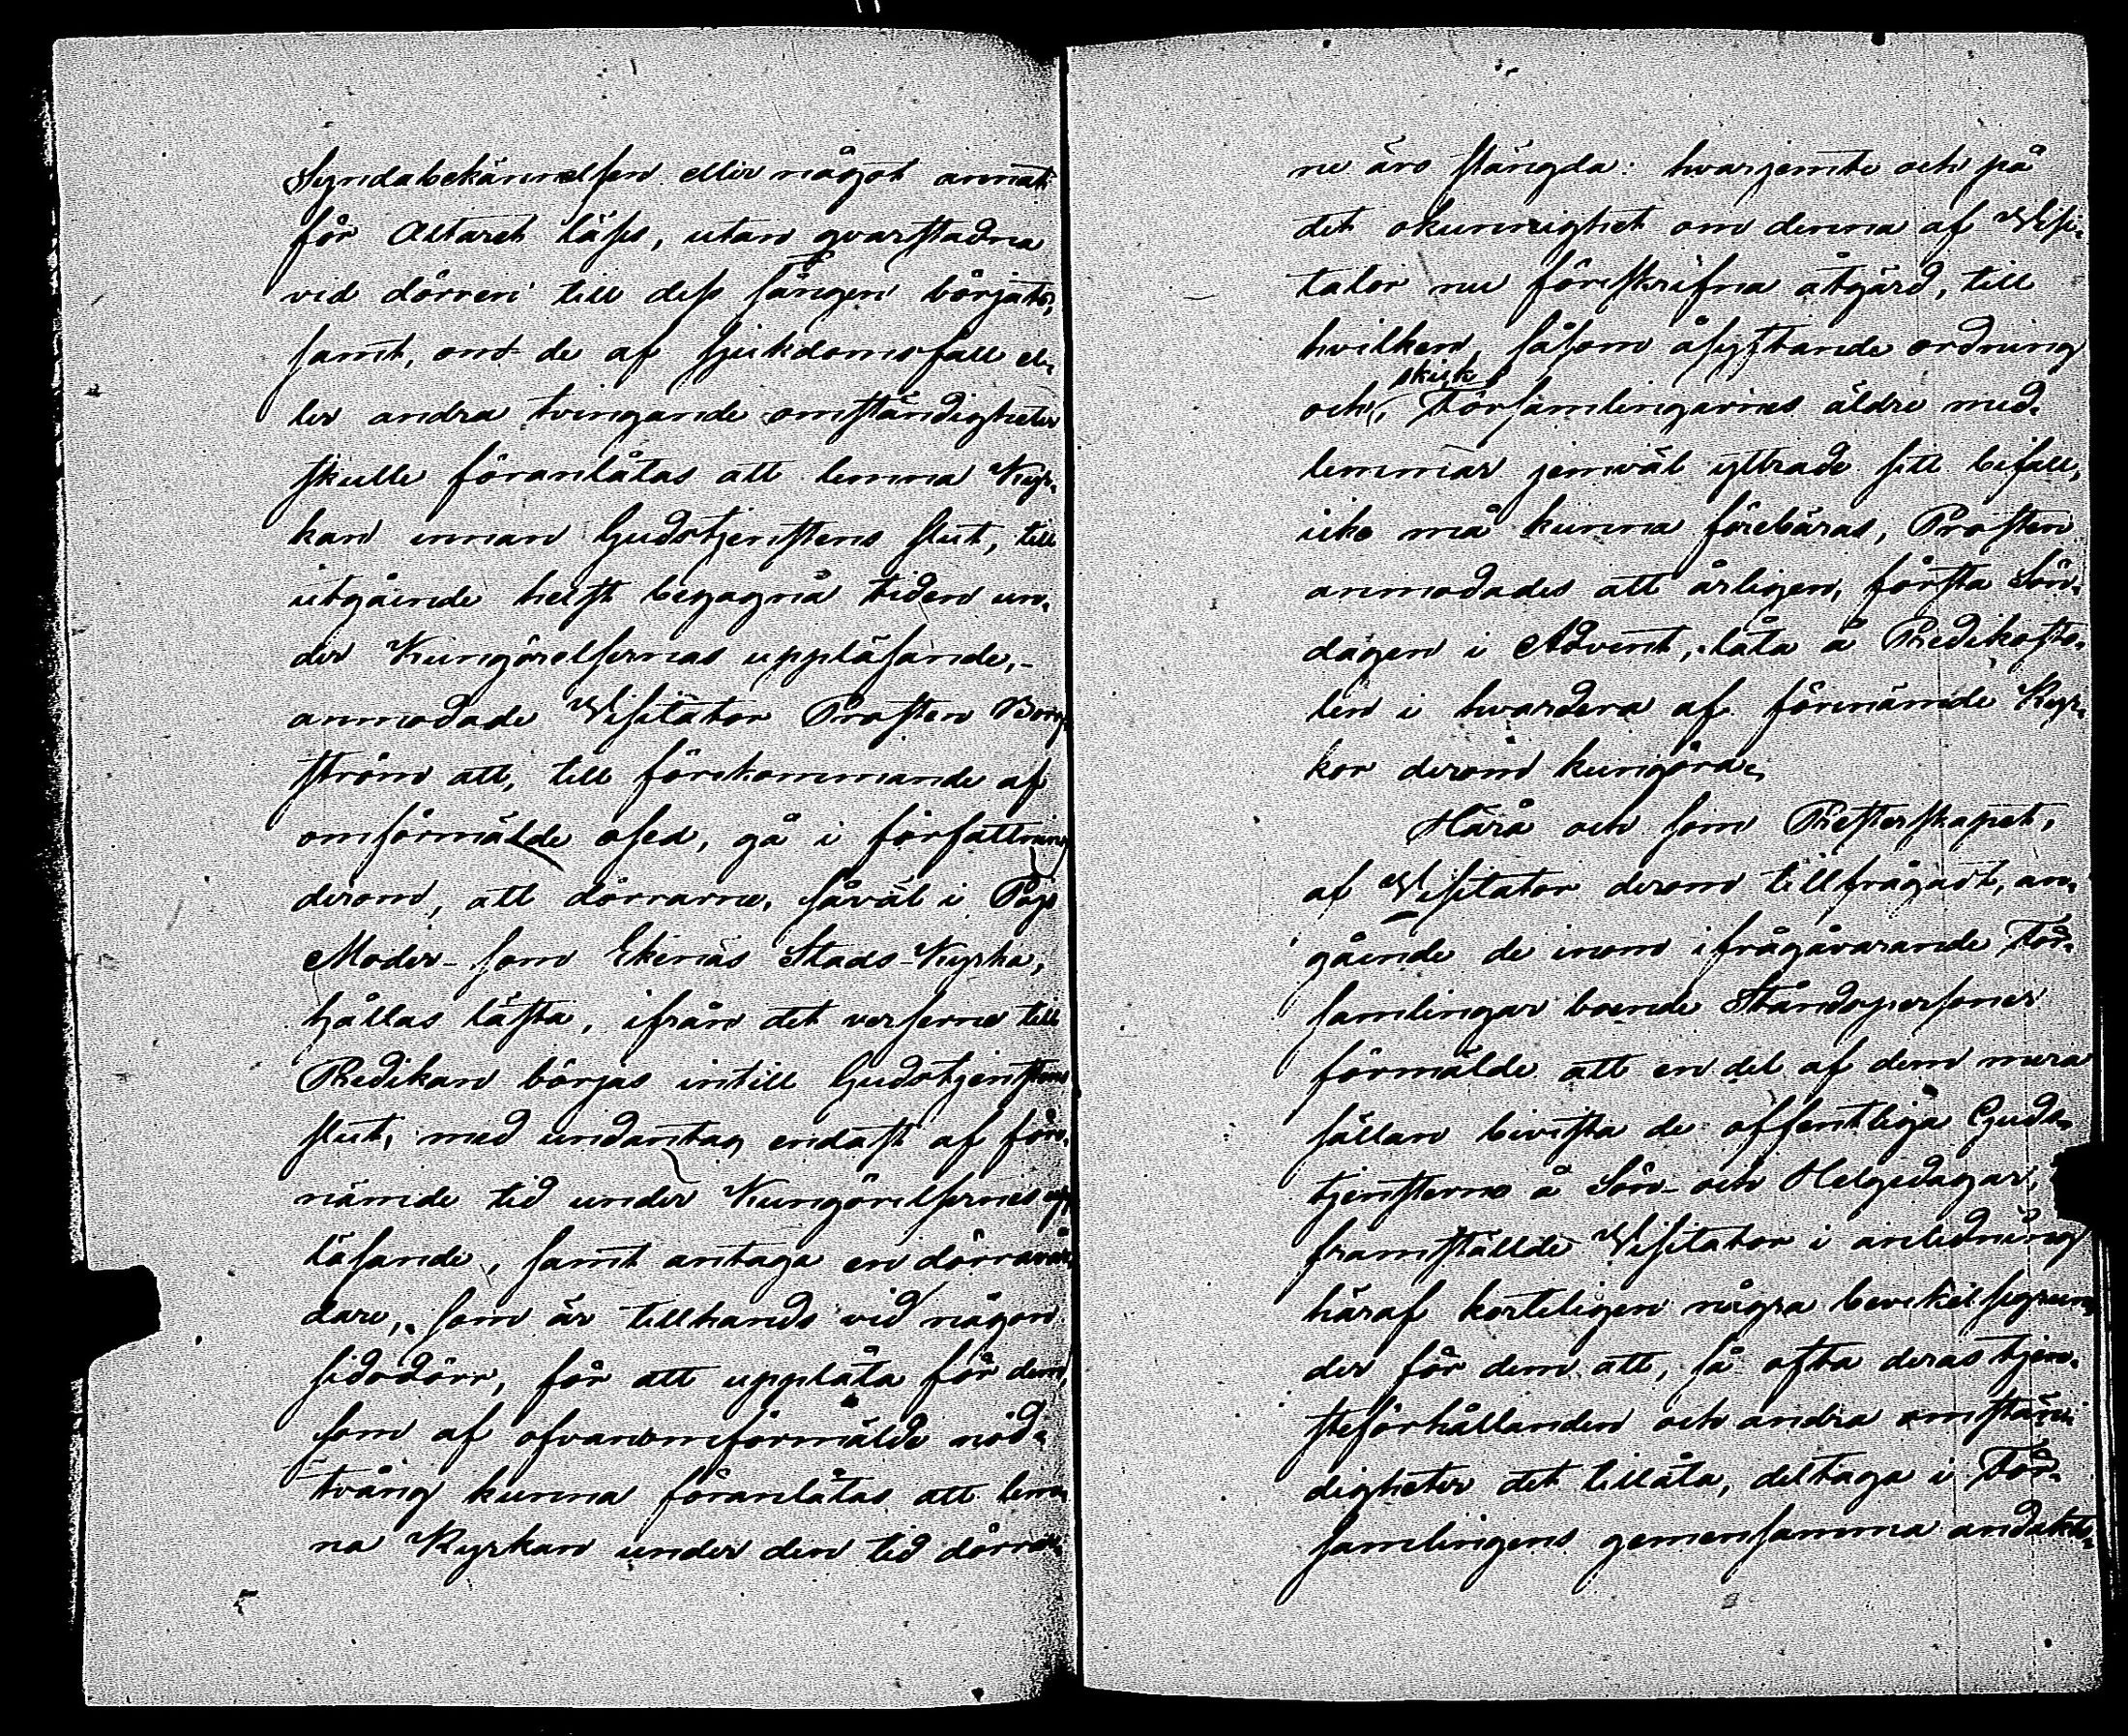 Syndabekännelsen eller något annat
för Altaret läses, utan qvarstadna
vid dörren till dess sången börjats,
samt, om de af sjukdomsfall el-
ler andra tvingande omständigheter
skulle föranlåtas att lemna Kyr-
kan innan Gudstjenstens slut, till
utgående helst begagna tiden un-
der Kungörelsernas uppläsande,-
anmodade Visitator Prosten Borg-
ström att, till förekommande af
omförmälde osed, gå i författning
derom, att dörrarne, såväl i Pojo
Moder- som Ekenäs Stads-Kyrka,
hållas låsta, ifrån det verserne till
Predikan börjas intill Gudstjenstens
slut, med undantag endast af för-
nämde tid under Kungörelsernes upp-
läsande, samt antaga en dörravak-
dare, som är tillhands vid någon
sidodörr, för att upplåta för dem,
som af ofvanomförmälde nöd-
tvång kunna föranlåtas att lem-
na Kyrkan under den tid dörrar-
ne äro stängda: hvarjemte och på
det okunnighet om denna af Visi-
tator nu föreskrifna åtgärd, till
hvilken, såsom åsyftande ordning
och skick, Församlingarnes äldre med-
lemmar jemväl yttrade sitt bifall,
icke må kunna förebäras, Prosten
anmodades att årligen, första Sön-
dagen i Advent, låta å Predikosto-
len i hvardera af förenämde Kyr-
kor derom kungöra.
Härå och som Presterskapet,
af Visitator derom tillfrågadt, an-
gående de inom ifrågavarande För-
samlingar boende Ståndspersoner
förmälde att en del af dem mera
sällan bevista de offentliga Guds-
tjensterne å Sön- och Helgedagar,
framställde Visitator i anledning
häraf korteligen några bevekelsegrun-
der för dem att, så ofta deras tjen-
steförhållanden och andra omstän-
digheter det tillåta, deltaga i För-
samlingens gemensamma andakts-